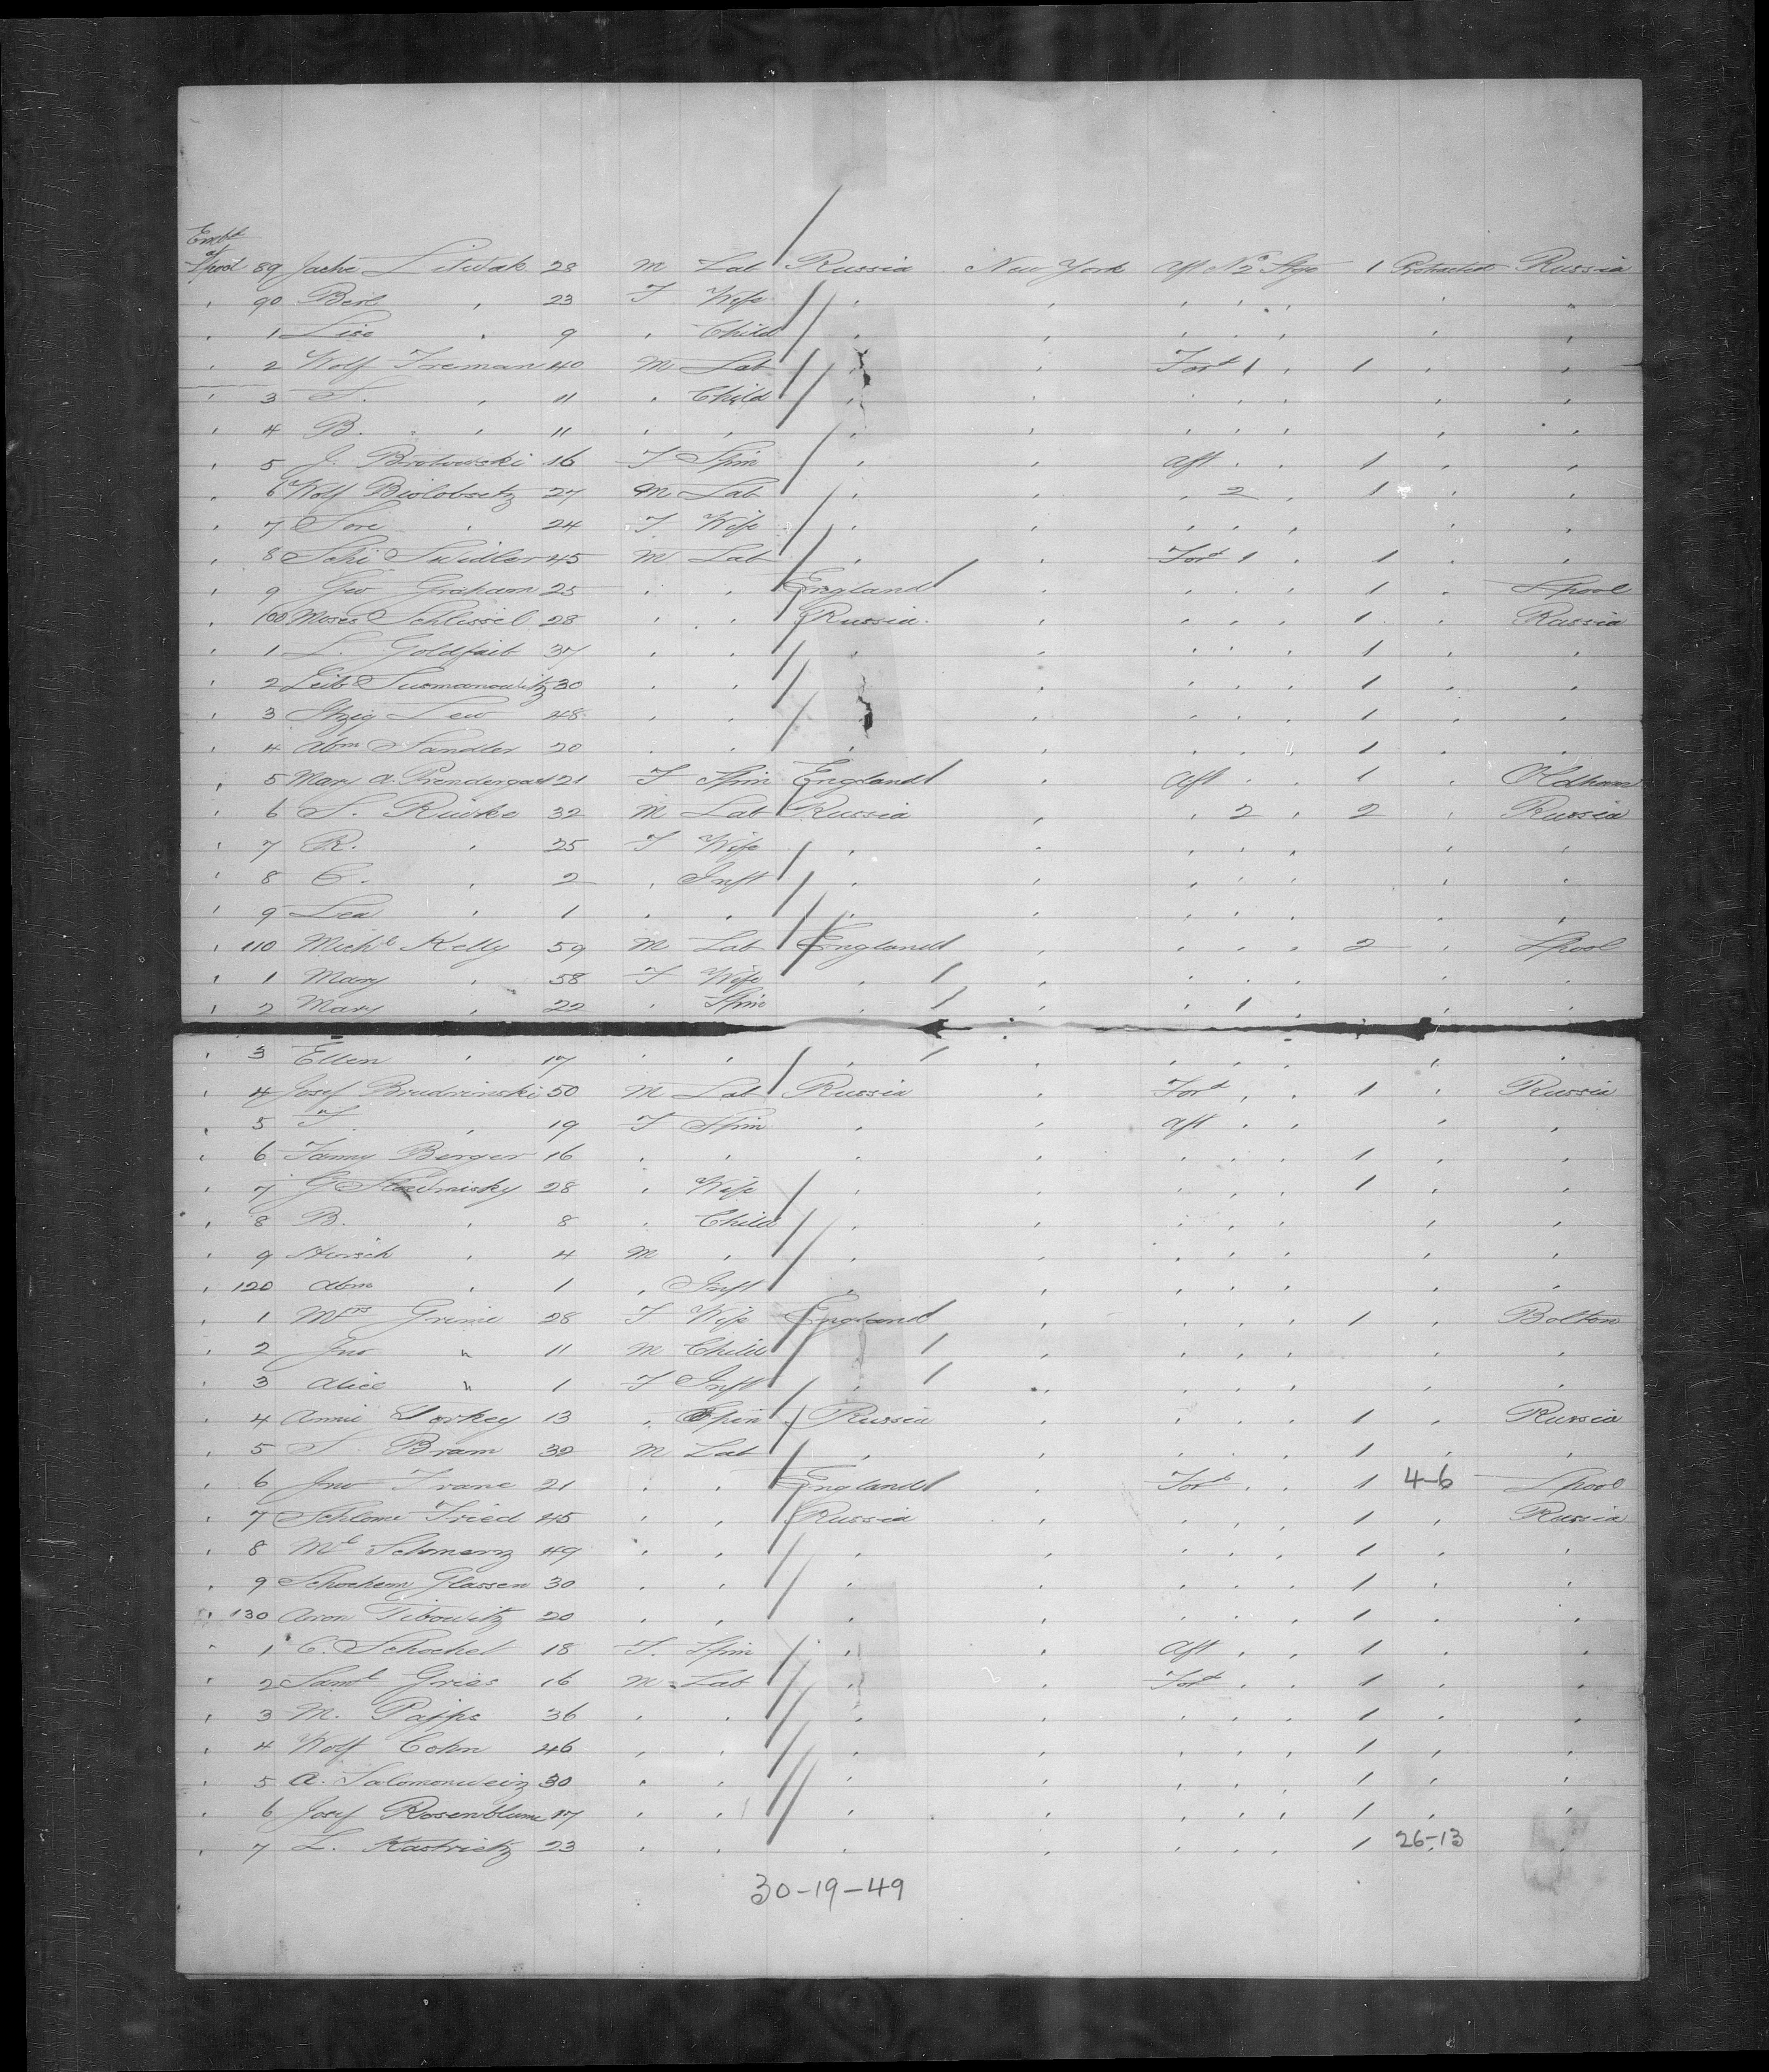 Embd
at
Lpool 89 Jache Litwak 28 M Lab Russia New York Aft No 2 Stge 1 Protracted Russia
" 90 Berl " 23 F Wife " " " " " " "
" 1 Lise " 9 " Child " " " " " " "
" 2 Wolf Freman 40 M Lab " " Ford 1 " 1 " "
" 3 S. " 11 " Child " " " " " " "
" 4 B. " 11 " " " " " " " " "
" 5 J. Brotowski 16 F Spin " " Aft " " 1 " "
" 6 Wolf Biolobsetz 27 M Lab " " " 2 " 1 " "
" 7 Sore " 24 F Wife " " " " " " "
" 8 Schi Swidler 45 M Lab " " Ford 1 " 1 " "
" 9 Geo Graham 25 " " England " " " " 1 " Lpool
" 100 Moses Schlissel 28 " " Russia " " " " 1 " Russia
" 1 L. Goldfarb 37 " " " " " " " 1 " "
" 2 Leib Susmanowitz 30 " " " " " " " 1 " "
" 3 Itzig Lew 48 " " " " " " " 1 " "
" 4 Abm Sandler 20 " " " " " " " 1 " "
" 5 Mary A. Prendergast 21 F Spin England " Aft " " 1 " Oldham
" 6 S. Rudke 32 M Lab Russia " " 2 " 2 " Russia
" 7 R. " 25 F Wife " " " " " " "
" 8 C. " 2 " Inft " " " " " " "
" 9 Lea " 1 " " " " " " " " "
" 110 Michl Kelly 59 M Lab England " " " " 2 " Lpool
" 1 Mary " 58 F Wife " " " " " " "
" 2 Mary " 22 " Spin " " " 1 " " "
" 3 Ellen " 17 " " " " " " " " "
" 4 Josef Brudzinski 50 M Lab Russia " Ford " " 1 " Russia
" 5 F. " 19 F Spin " " Aft " " " "
" 6 Fanny Berger 16 " " " " " " " 1 " "
" 7 G 28 " Wife " " " " " 1 " "
" 8 B. " 8 " Child " " " " " " "
" 9 Hirsch " 4 M " " " " " " " "
" 120 Abm " 1 " Inft " " " " " " "
" 1 Mrs Grime 28 F Wife England " " " " 1 " Bolton
" 2 Jno " 11 M Child " " " " " " "
" 3 Alice " 1 F Inft " " " " " " "
" 4 Annie Torkey 13 " Spin Russia " " " " 1 " Russia
" 5 S. Bram 32 M Lab " " " " " 1 " "
" 6 Jno Frane 21 " " England " Ford " " 1 4-6 Lpool
" 7 Schlome Fried 45 " " Russia " " " " 1 " Russia
" 8 Ml Schmerz 49 " " " " " " " 1 " "
" 9 Schochem Glassen 30 " " " " " " " 1 " "
" 130 Aron Tibowitz 20 " " " " " " " 1 " "
" 1 C. Schochet 18 F. Spin " " Aft " " 1 " "
" 2 Saml Gries 16 M Lab " " Ford " " 1 " "
" 3 M. Pajps 36 " " " " " " " 1 " "
" 4 Wolf Cohn 46 " " " " " " " 1 " "
" 5 A. Salomonweiz 30 " " " " " " " 1 " "
" 6 Josef Rosenblume 17 " " " " " " " 1 " "
" 7 L. Kastrietz 23 " " " " " " " 1 26-13 "
30-19-49